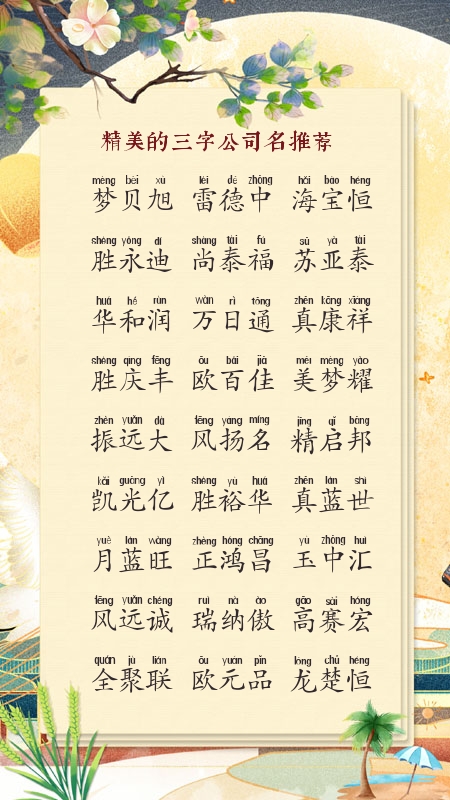 精美的三字公司名推荐
mèng bèi xù léi dé zhōng hǎi bǎo héng
梦贝旭 雷德中 海宝恒
shèng yǒng dí shàng tài fú sū yà tài
胜永迪 尚泰福 苏亚泰
huá hé rùn wàn rì tōng zhēn kāng xiáng
华和润 万日通 真康祥
shèng qìng fēng ōu bǎi jiā měi mèng yào
胜庆丰 欧百佳 美梦耀
zhèn yuǎn dà fēng yáng míng jīng qǐ bāng
振远大 风扬名 精启邦
kǎi guāng yì shèng yù huá zhēn lán shì
凯光亿 胜裕华 真蓝世
yuè lán wàng zhèng hóng chāng yù zhōng huì
月蓝旺 正鸿昌 玉中汇
fēng yuǎn chéng ruì nà ào gāo sài hóng
风远诚 瑞纳傲 高赛宏
quán jù lián ōu yuán pǐn lóng chǔ héng
全聚联 欧元品 龙楚恒